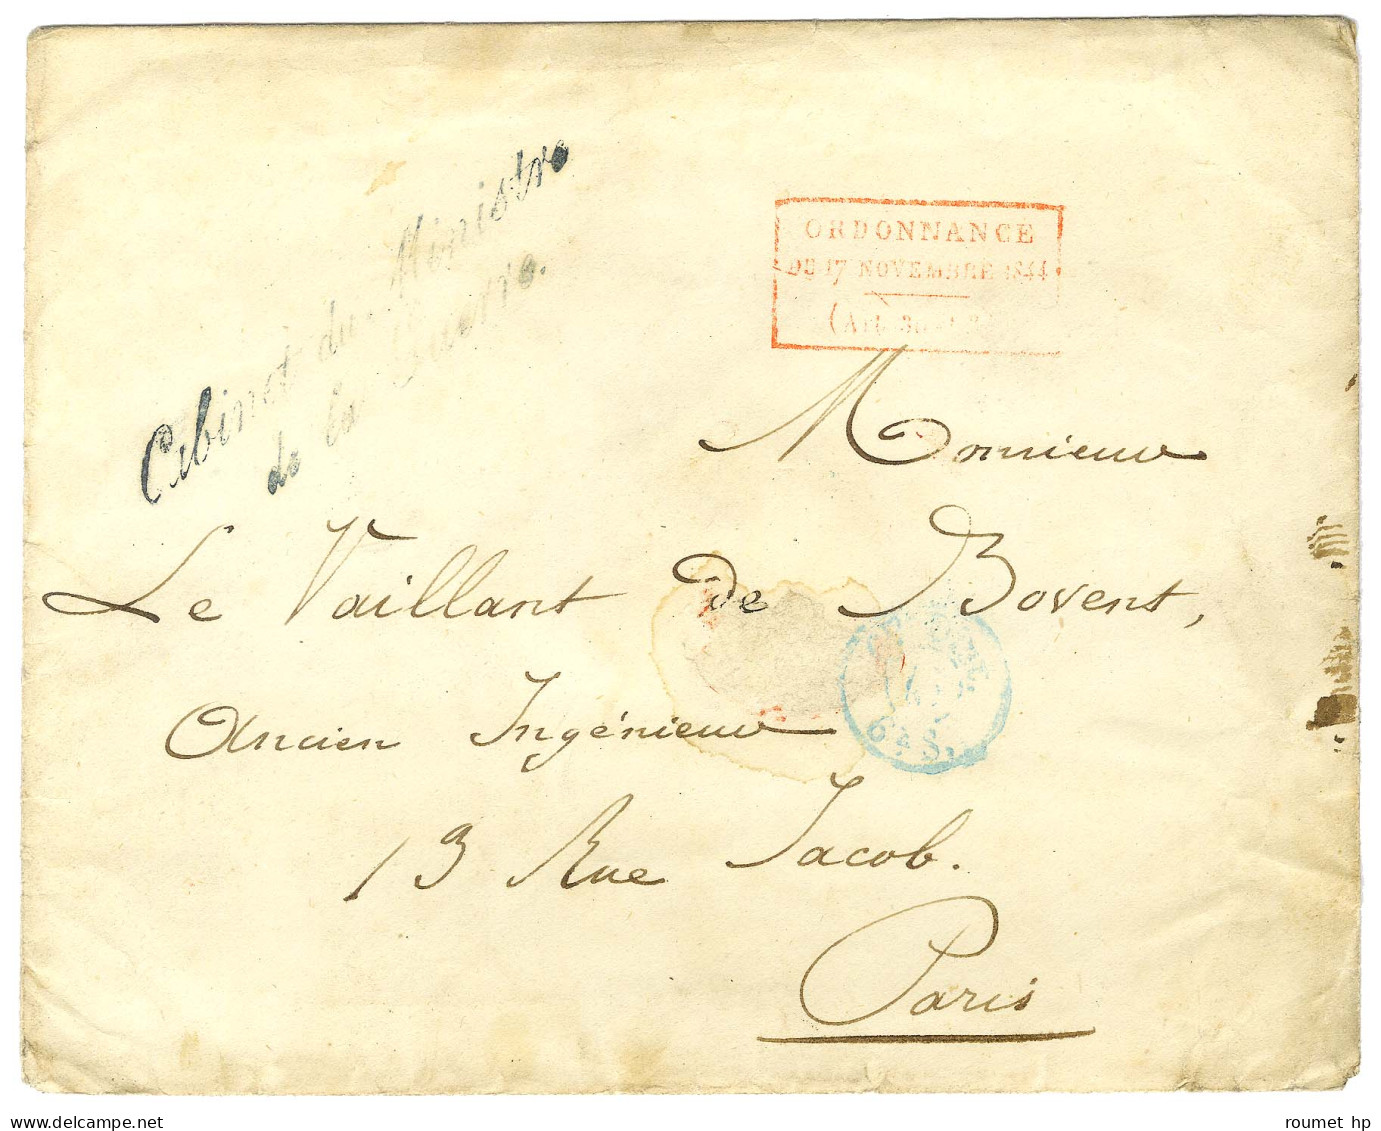 Cabinet du Ministre
de la Guerre.
ORDONNANCE
DU 17 NOVEMBRE 1844
(Art.
Monsieur
Le Vaillant de Bovent,
Ancien Ingénieur
13 Rue Jacob.
Paris
6
S.
roumet hp